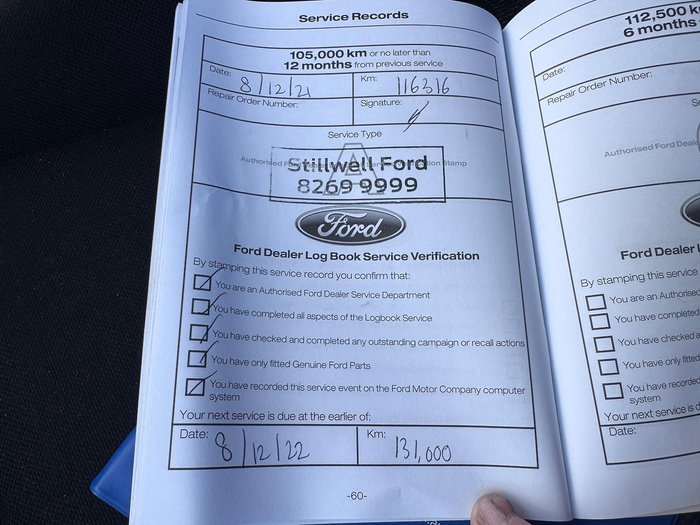 Service Records
105,000 km or no later than
12 months from previous service
Date: 8/12/21 Km: 116316
Repair Order Number: Signature:
Service Type
A
Authorised Ford Stamp
Stillwell Ford
8269 9999
Ford
Ford Dealer Log Book Service Verification
By stamping this service record you confirm that:
You are an Authorised Ford Dealer Service Department
You have completed all aspects of the Logbook Service
You have checked and completed any outstanding campaign or recall actions
You have only fitted Genuine Ford Parts
You have recorded this service event on the Ford Motor Company computer
system
Your next service is due at the earlier of:
Date: 8/12/22 Km: 131,000
-60-
112,500 k
6 months
Date:
Repair Order Number:
Se
Authorised Ford Deale
Ford Dealer L
By stamping this service
You are an Authorised
You have completed
You have checked a
You have only fitted
You have recorded
system
Your next service is d
Date: